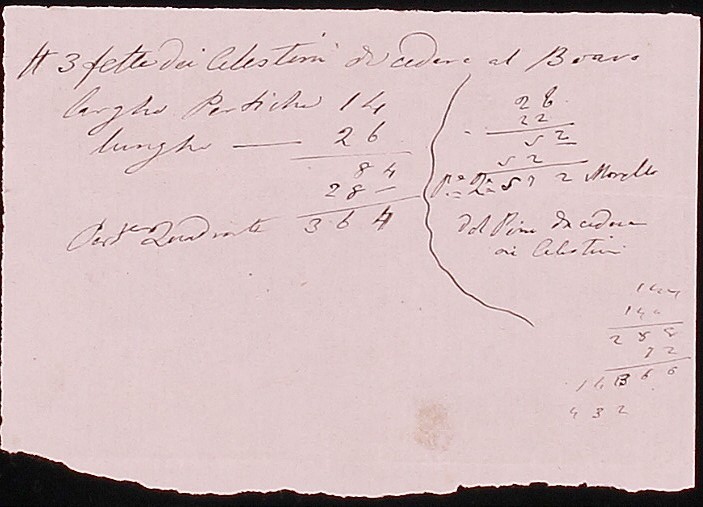 3 fette dei Celestini da cedere al Boaro
larghe Pertiche 14
lunghe — 26
84
28 —
Pert.e Quadrate 364
26
22
52
52
P.e Q.e 572 Morello
del Pino da cedere
ai Celestini
144
144
288
72
432